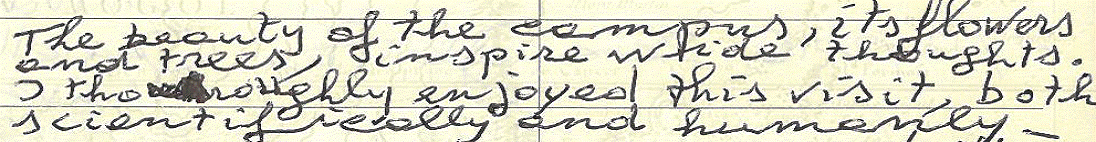 The beauty of the campus, its flowers
and trees, inspire wide thoughts.
I thoroughly enjoyed this visit, both
scientifically and humanly –